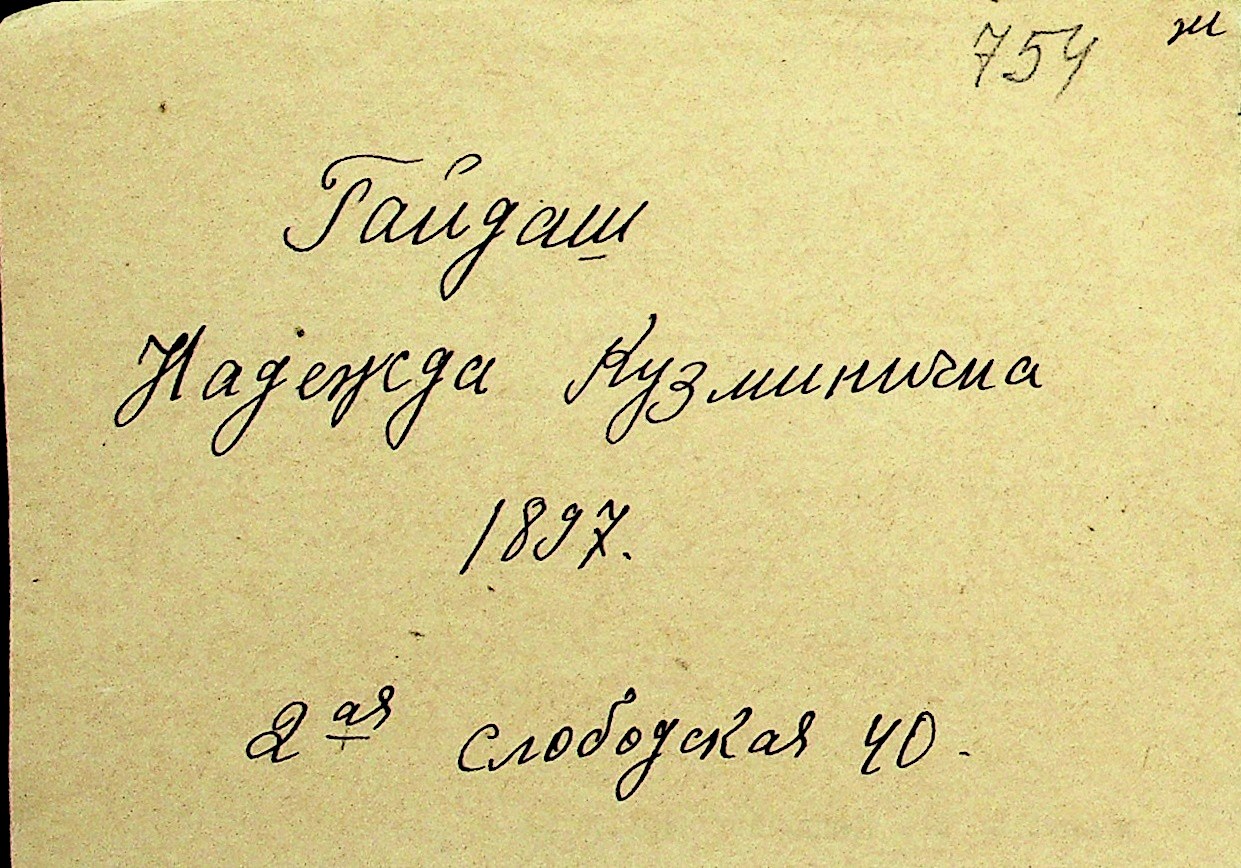 754 ж
Гайдаш
Надежда Кузминична
1897.
2ая слободская 40.